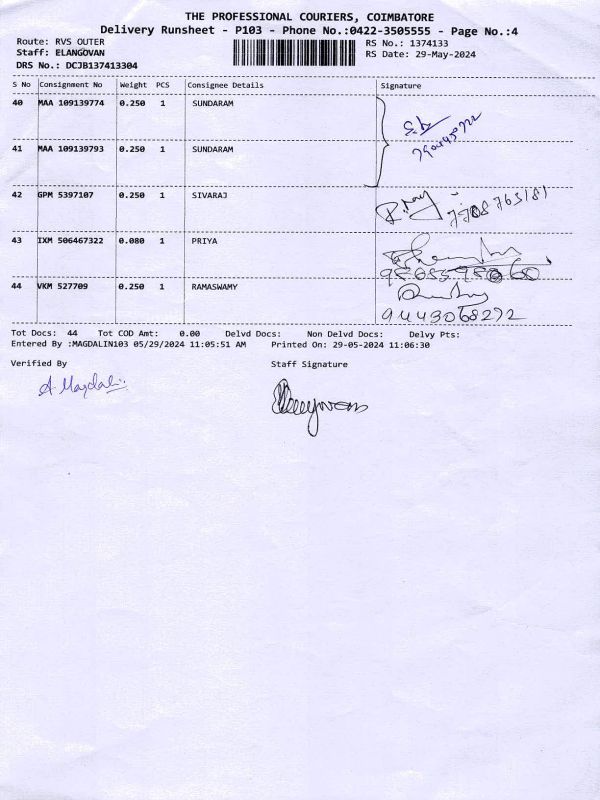 THE PROFESSIONAL COURIERS, COIMBATORE
Delivery Runsheet - P103 - Phone No.:0422-3505555 - Page No.:4
Route: RVS OUTER RS No.: 1374133
Staff: ELANGOVAN RS Date: 29-May-2024
DRS No.: DCJB137413304
S No Consignment No Weight PCS Consignee Details Signature
40 MAA 109139774 0.250 1 SUNDARAM
41 MAA 109139793 0.250 1 SUNDARAM
42 GPM 5397107 0.250 1 SIVARAJ
7708763181
43 IXM 506467322 0.080 1 PRIYA
44 VKM 527709 0.250 1 RAMASWAMY
9443068272
Tot Docs: 44 Tot COD Amt: 0.00 Delvd Docs: Non Delvd Docs: Delvy Pts:
Entered By :MAGDALIN103 05/29/2024 11:05:51 AM Printed On: 29-05-2024 11:06:30
Verified By Staff Signature
A Magdali